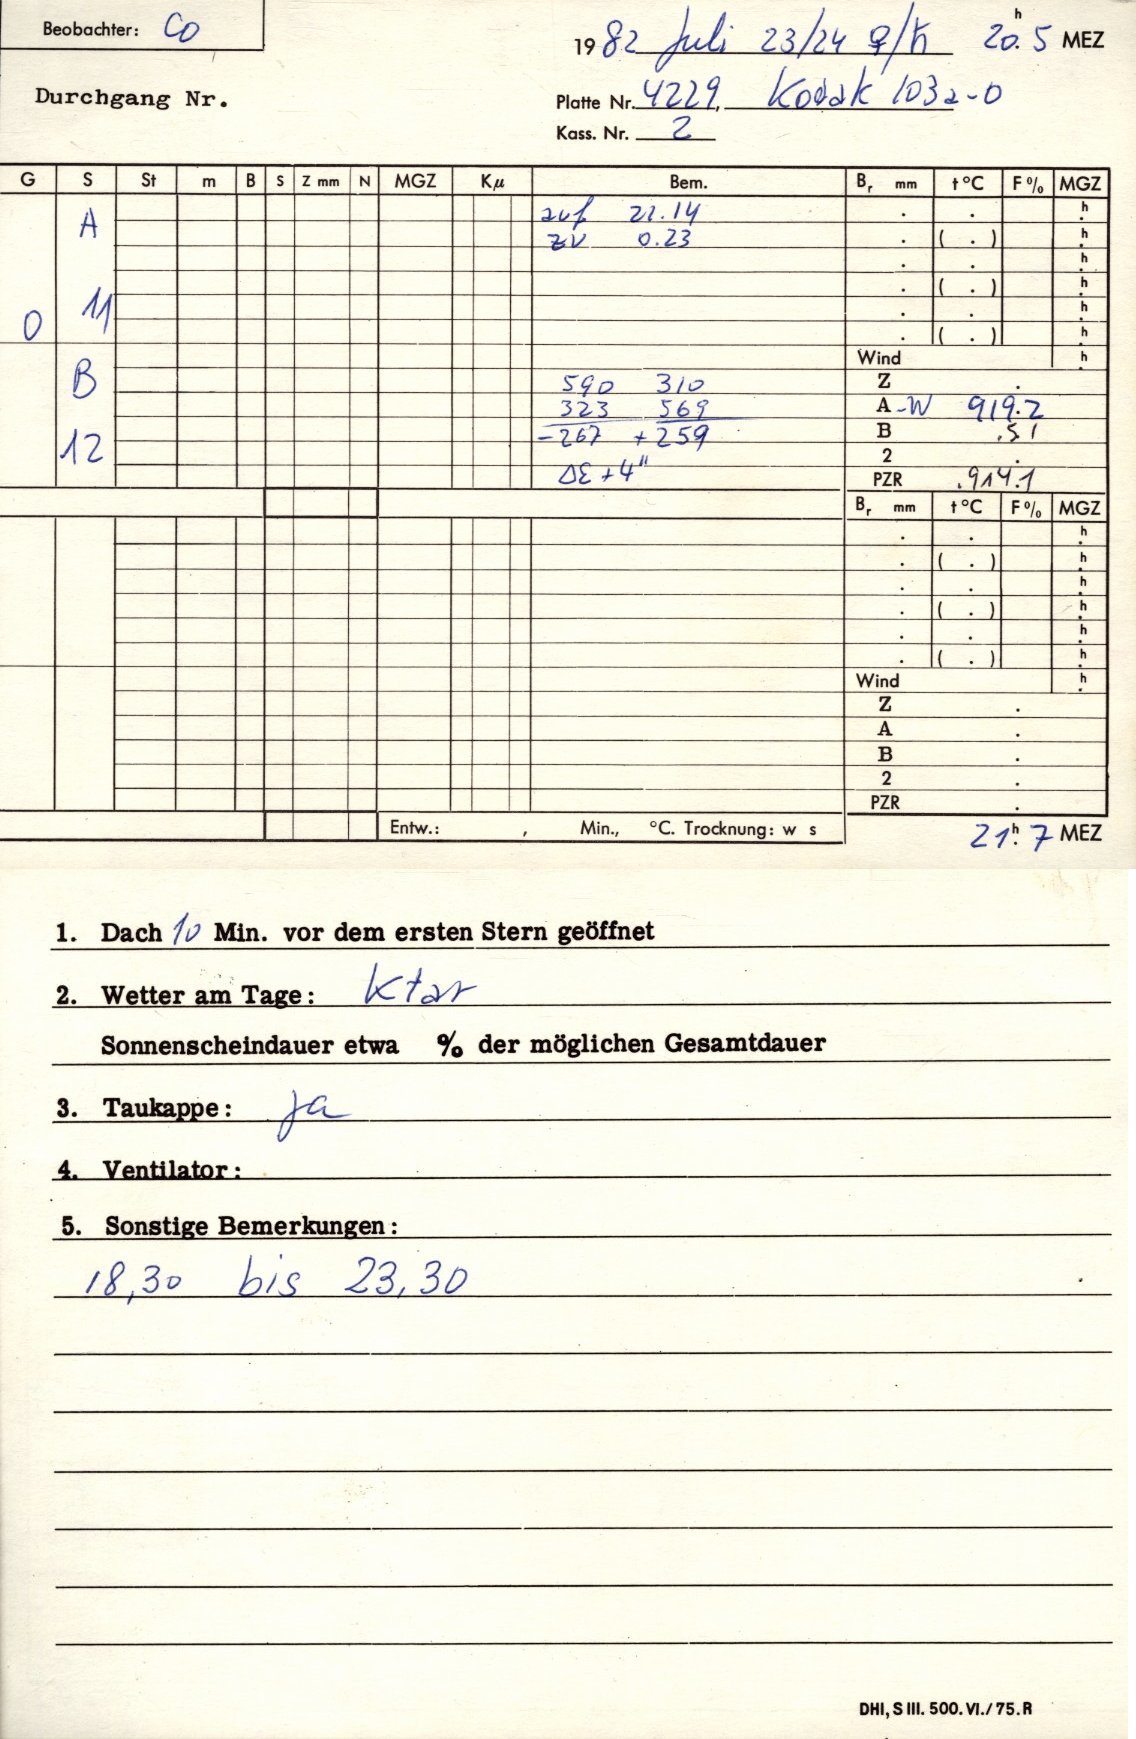 Beobachter: Co
1982 Juli 23/24 ♀/♄ 20h.5 MEZ
Durchgang Nr.
Platte Nr. 4229, Kodak 103a-O
Kass. Nr. 2
G S St m B S Z mm N MGZ Kμ Bem. Br mm t °C F % MGZ
A auf 21.14 . . h
zu 0.23 . ( . ) h
. . h
11 . ( . ) h
0 . . h
. ( . ) h
Wind h
B 590 310 Z .
323 569 A -W 919.2
12 -267 +259 B .51
ΔE +4" 2 .
PZR .914.1
Br mm t °C F % MGZ
. . h
. ( . ) h
. . h
. ( . ) h
. . h
. ( . ) h
Wind h
Z .
A .
B .
2 .
PZR .
Entw.: , Min., °C. Trocknung: w s
21h.7 MEZ
1. Dach 10 Min. vor dem ersten Stern geöffnet
2. Wetter am Tage: klar
Sonnenscheindauer etwa % der möglichen Gesamtdauer
3. Taukappe: ja
4. Ventilator:
5. Sonstige Bemerkungen:
18,30 bis 23,30
DHI, S III. 500. VI./75. R